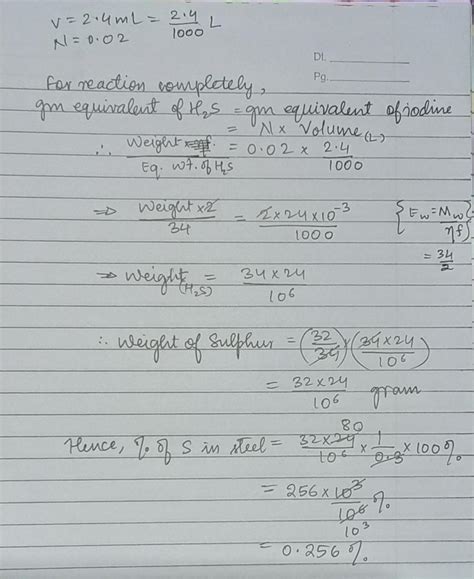 V = 2.4 mL = 2.4/1000 L
N = 0.02
Dt.
Pg.
For reaction completely,
gm equivalent of H₂S = gm equivalent of iodine
= N × Volume (L)
∴ Weight / Eq. wt. of H₂S = 0.02 × 2.4/1000
⇒ Weight × 2 / 34 = 2 × 24 × 10⁻³ / 1000 { Ew = Mw / ηf }
= 34/2
⇒ Weight (H₂S) = 34 × 24 / 10⁶
∴ Weight of Sulphur = (32/34) × (34 × 24 / 10⁶)
= 32 × 24 / 10⁶ gram
80
Hence, % of S in steel = 32 × 24 / 10⁶ × 1/0.3 × 100 %
= 256 × 10³ / 10⁶ %
10³
= 0.256 %